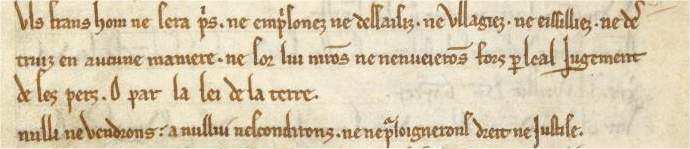 Uls frans hom ne sera pris. ne emprisonez ne dessaisiz. ne ullagiez. ne eissilliez. ne de
truiz en aucune maniere. ne sor lui mrōs ne nenveierōs fors p leal Jugement
de ses pers. O par la lei de la terre.
nulli ne vendrons: a nullui nescondirons. ne ne ploignerons dreit ne Justise.